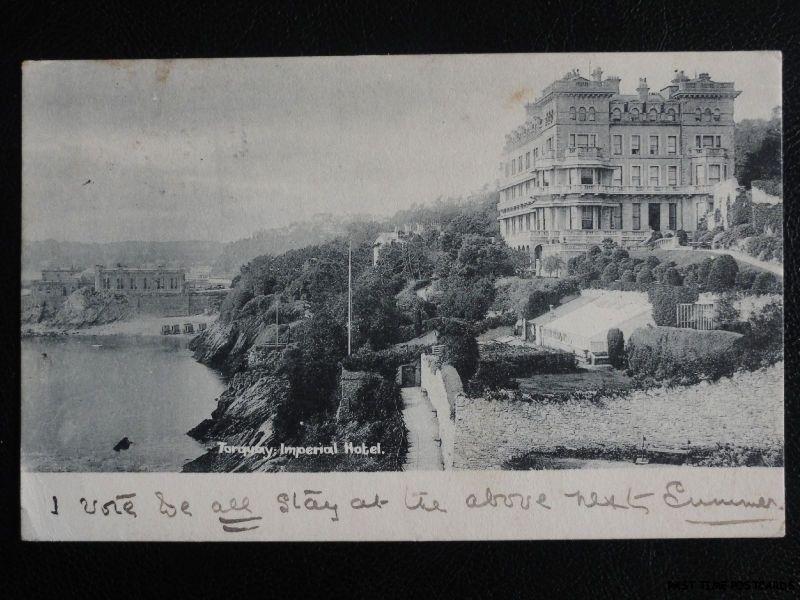 Torquay: Imperial Hotel.
I vote we all stay at the above next Summer
PAST TIME POSTCARDS